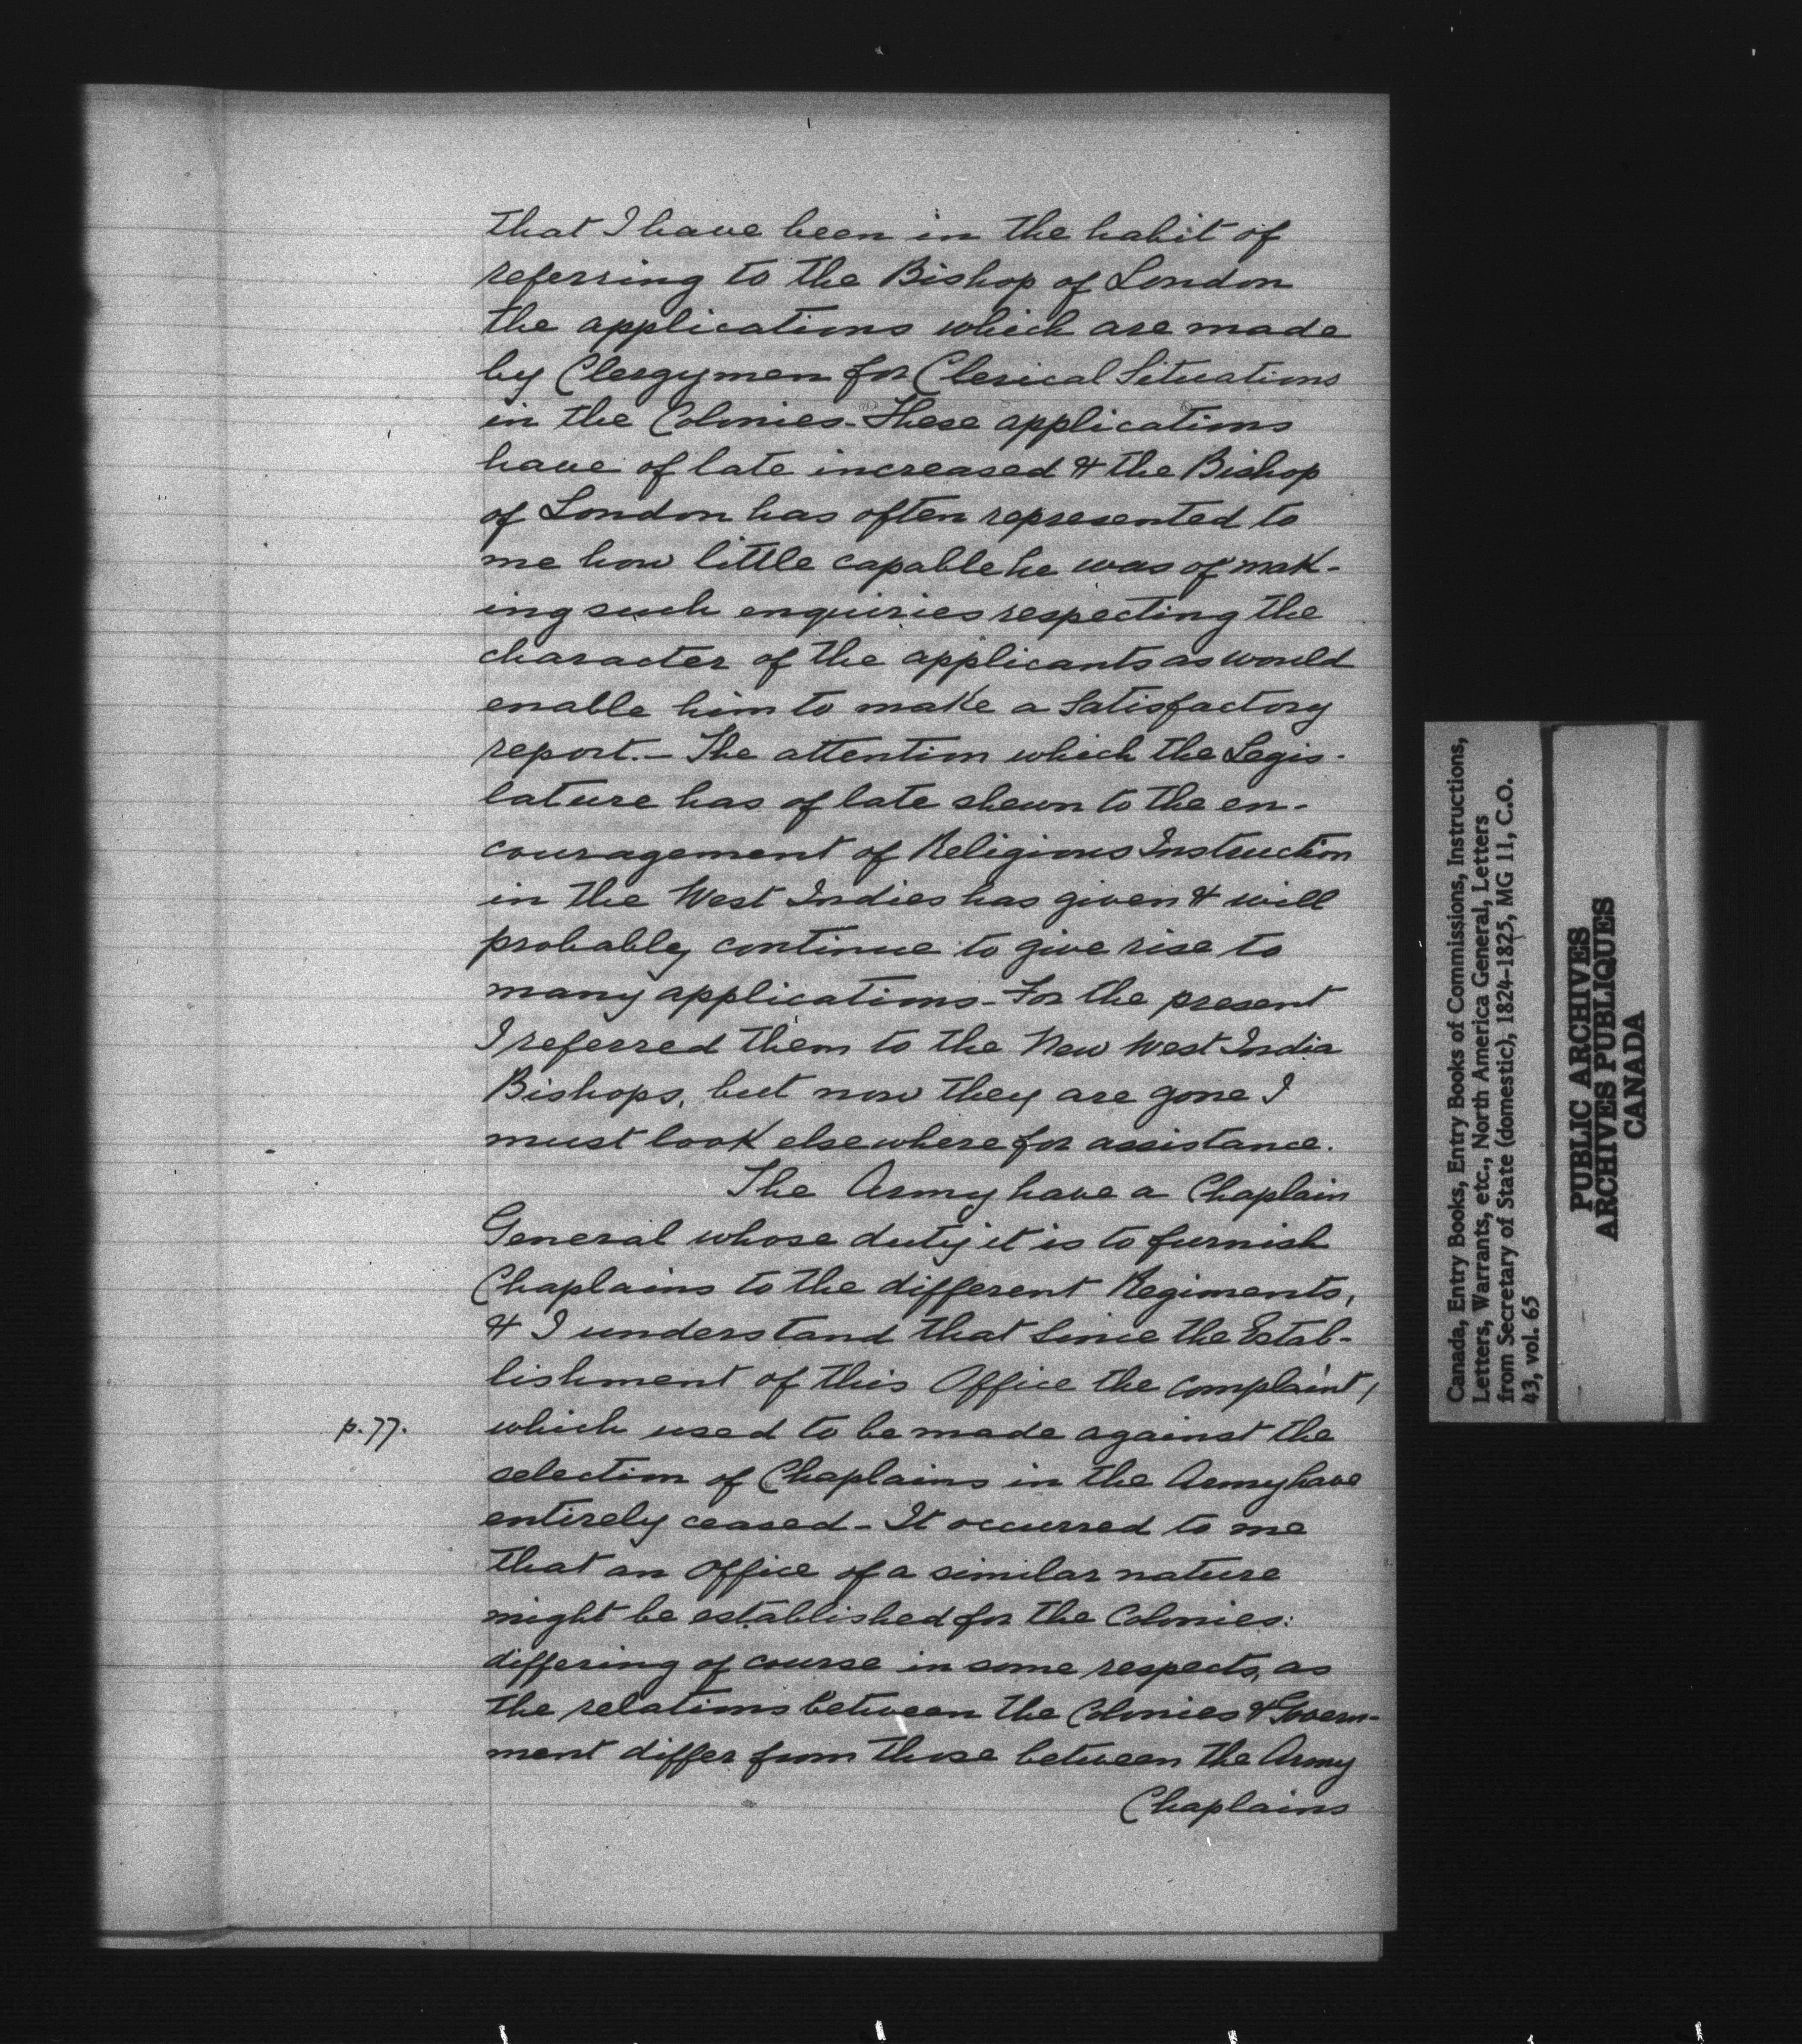 that I have been in the habit of
referring to the Bishop of London
the applications which are made
by Clergymen for Clerical Situations
in the Colonies - These applications
have of late increased & the Bishop
of London has often represented to
me how little capable he was of mak-
ing such enquiries respecting the
character of the applicants as would
enable him to make a satisfactory
report. - The attention which the Legis-
lature has of late shewn to the en-
couragement of Religious Instruction
in the West Indies has given & will
probably continue to give rise to
many applications - For the present
I referred them to the New West India
Bishops, but now they are gone I
must look elsewhere for assistance.
The Army have a Chaplain
General whose duty it is to furnish
Chaplains to the different Regiments,
& I understand that since the Estab-
lishment of this Office the complaint,
p. 77.
which used to be made against the
selection of Chaplains in the Army have
entirely ceased - It occurred to me
that an Office of a similar nature
might be established for the Colonies:
differing of course in some respects, as
the relations between the Colonies & Govern-
ment differ from those between the Army
Chaplains
Canada, Entry Books, Entry Books of Commissions, Instructions,
Letters, Warrants, etc., North America General, Letters
from Secretary of State (domestic), 1824-1825, MG 11, C.O.
43, vol. 65
PUBLIC ARCHIVES
ARCHIVES PUBLIQUES
CANADA